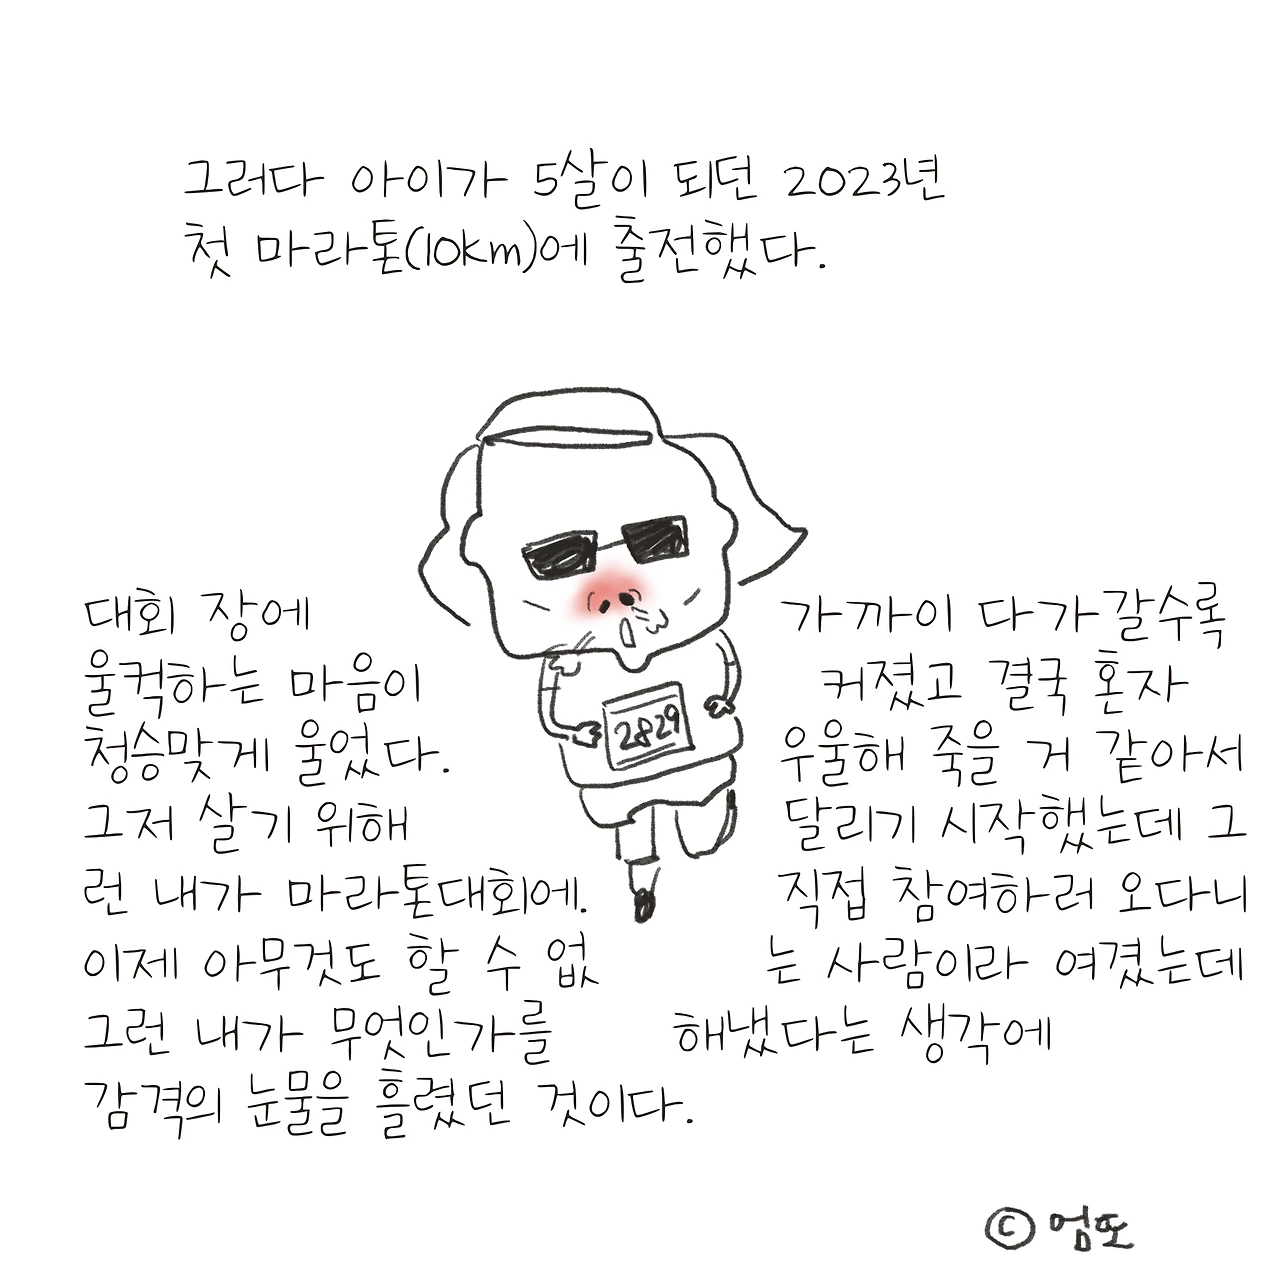 그러다 아이가 5살이 되던 2023년
첫 마라톤(10km)에 출전했다.
대회 장에 가까이 다가갈수록
울컥하는 마음이 커졌고 결국 혼자
청승맞게 울었다. 우울해 죽을 거 같아서
그저 살기 위해 달리기 시작했는데 그
런 내가 마라톤대회에. 직접 참여하러 오다니
이제 아무것도 할 수 없 는 사람이라 여겼는데
그런 내가 무엇인가를 해냈다는 생각에
감격의 눈물을 흘렸던 것이다.
2829
© 엄또